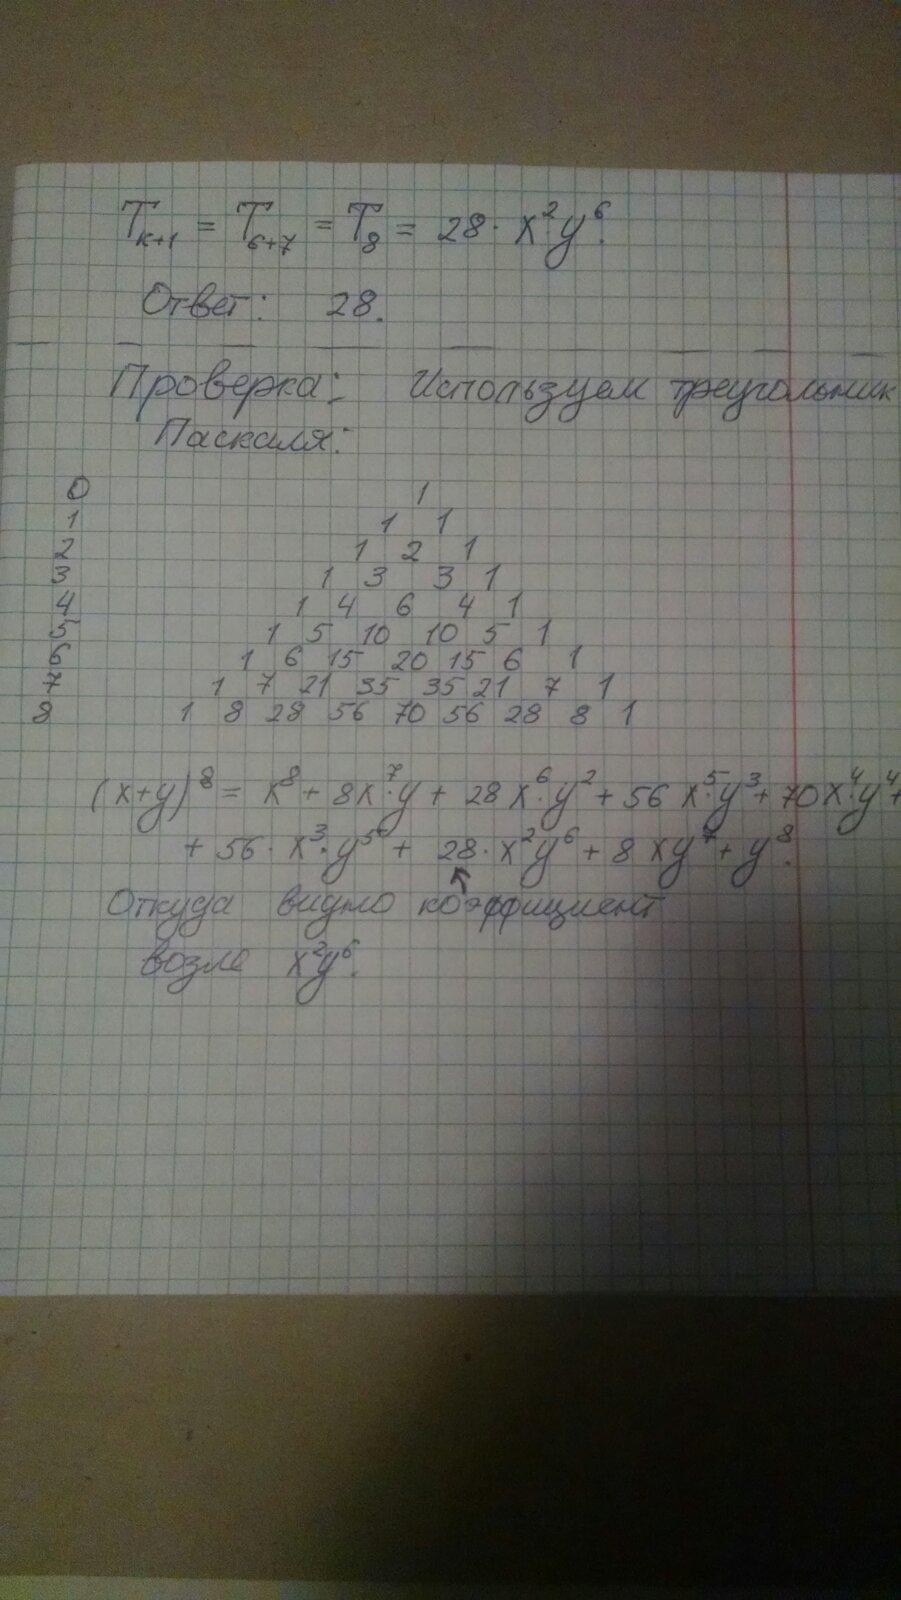 T_{k+1} = T_{6+7} = T_8 = 28 · x²y⁶.
Ответ: 28.
Проверка: Используем треугольник
Паскаля:
0 1
1 1 1
2 1 2 1
3 1 3 3 1
4 1 4 6 4 1
5 1 5 10 10 5 1
6 1 6 15 20 15 6 1
7 1 7 21 35 35 21 7 1
8 1 8 28 56 70 56 28 8 1
(x+y)⁸ = x⁸ + 8x⁷·y + 28x⁶·y² + 56x⁵·y³ + 70x⁴·y⁴ +
+ 56·x³·y⁵ + 28·x²y⁶ + 8xy⁷ + y⁸.
Откуда видно коэффициент
возле x²y⁶.